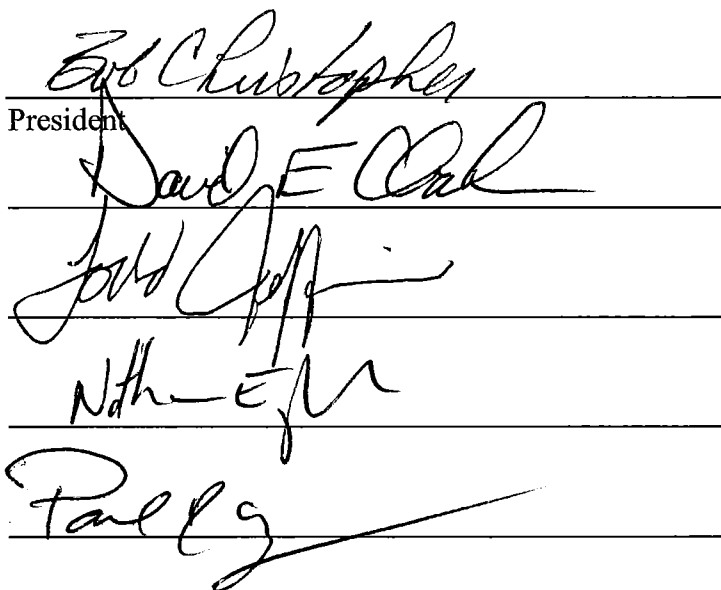 Bob Christopher
President
David E Clark
Todd
Nathan E
Paul